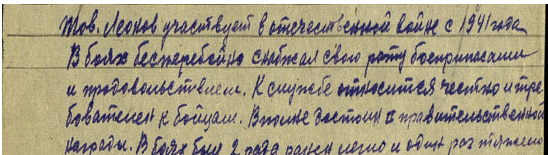 Тов. Леонов участвует в отечественной войне с 1941 года
В боях бесперебойно снабжал свою роту боеприпасами
и продовольствием. К службе относится честно и тре-
бователен к бойцам. Вполне достоин к правительственной
награды. В боях был 2 раза ранен легко и один раз тяжело